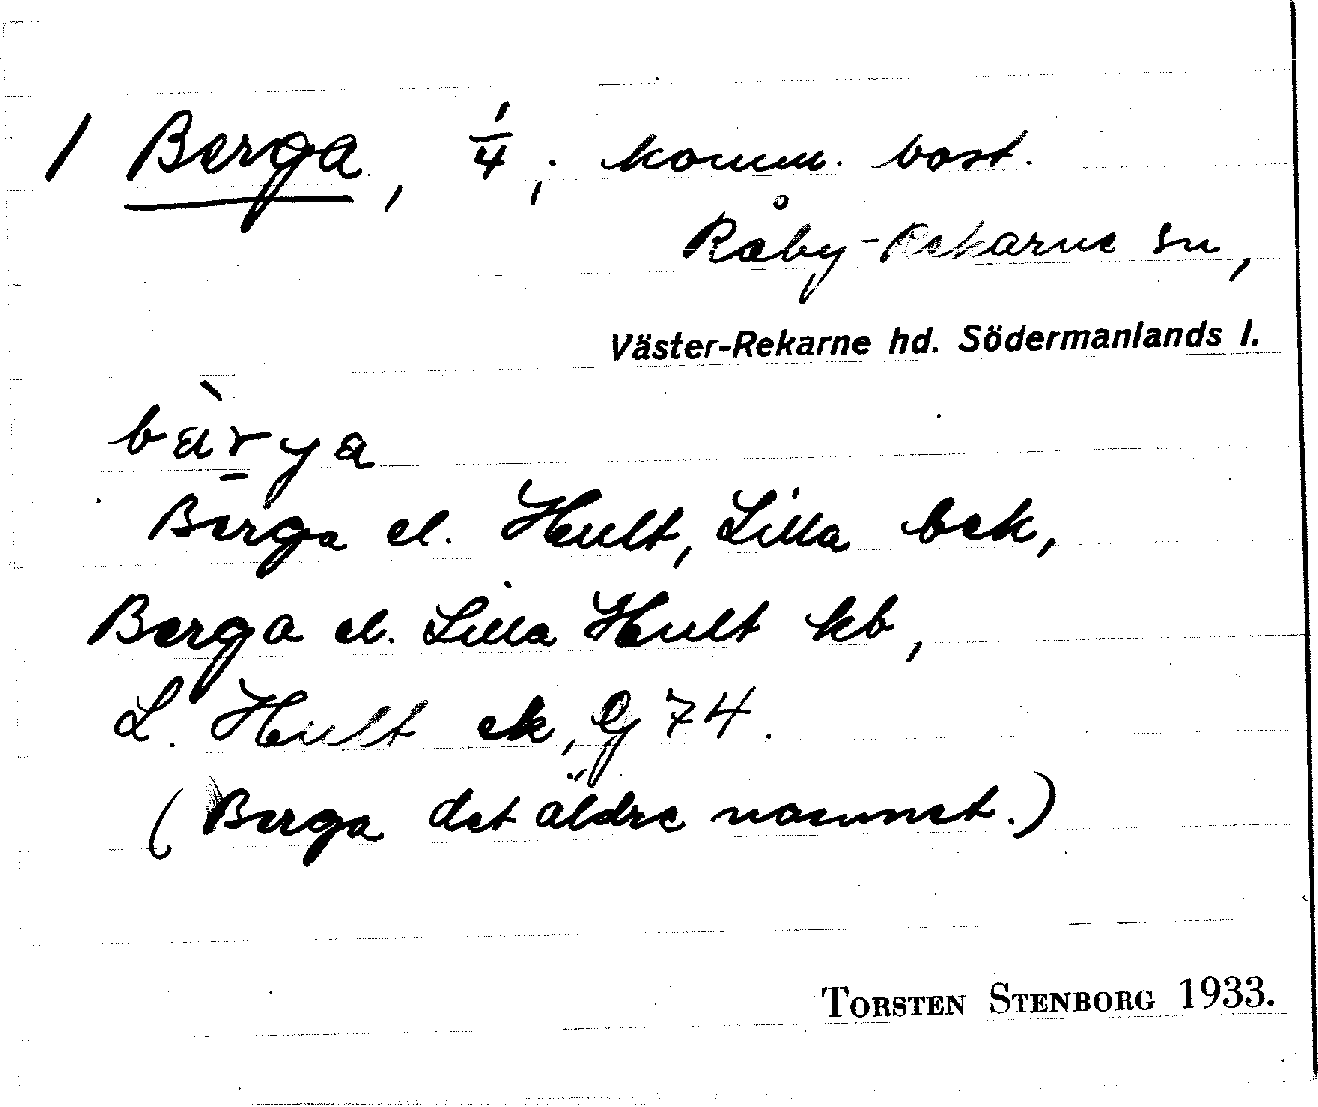 1 Berga, 1/4; komm. bost.
Råby-Rekarne sn,
Väster-Rekarne hd. Södermanlands l.
bàrya
Berga el. Hult, Lilla bek,
Berga el. Lilla Hult kb,
L. Hult ek, G 74.
(Berga det äldre namnet.)
TORSTEN STENBORG 1933.